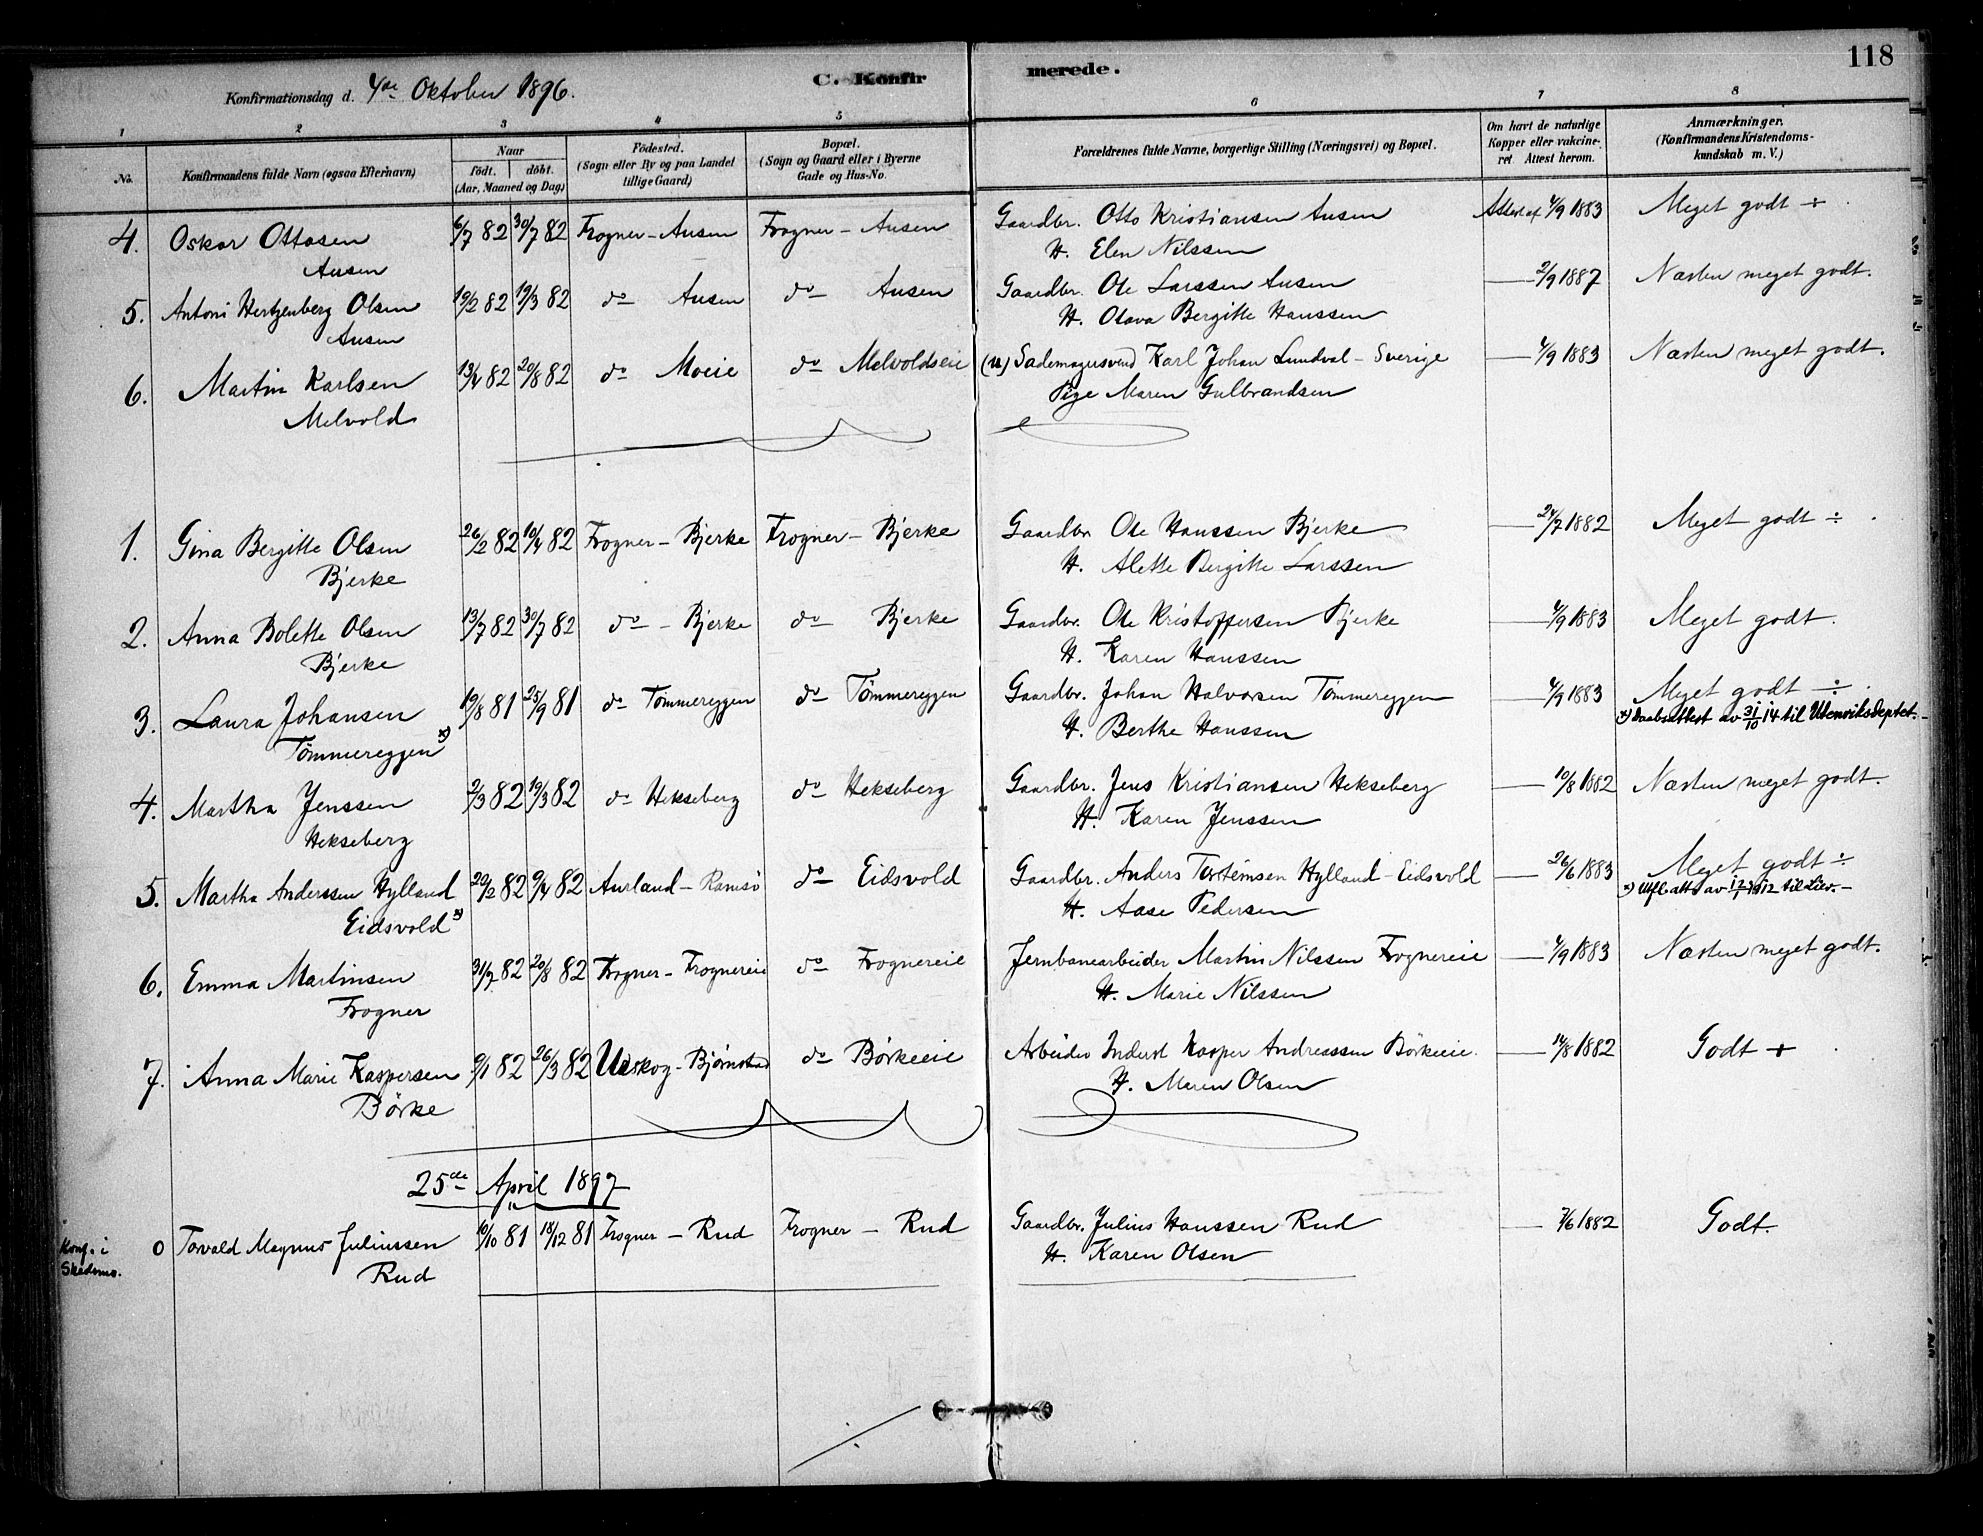 118
C. Konfirmerede.
Konfirmationsdag d. 4de Oktober 1896.
1 2 3 4 5 6 7 8
No.
Konfirmandens fulde Navn (ogsaa Efternavn)
Naar
födt. döbt.
(Aar, Maaned og Dag)
Födested.
(Sogn eller By og paa Landet
tillige Gaard)
Bopæl.
(Sogn og Gaard eller i Byerne
Gade og Hus-No.
Forældrenes fulde Navne, borgerlige Stilling (Næringsvei) og Bopæl.
Om havt de naturlige
Kopper eller vakcine-
ret. Attest herom.
Anmærkninger.
(Konfirmandens Kristendoms-
kundskab m. V.)
4. Oskar Ottosen 6/7 82 30/7 82 Frogner - Ausen Frogner - Ausen Gaardbr. Otto Kristiansen Ausen Attest af 4/9 1883 Meget godt ÷
Ausen H. Elen Nilssen
5. Antoni Hertzenberg Olsen 19/2 82 19/3 82 do Ausen do Ausen Gaardbr. Ole Larssen Ausen — 2/9 1887 Næsten meget godt.
Ausen H. Olava Bergitte Hanssen
6. Martin Karlsen 82 20/8 82 do Moeie do Melvoldseie (u) Sadelmagersvend Karl Johan Lundval - Sverige — 4/9 1883 Næsten meget godt.
Melvold Pige Maren Gulbrandsen
1. Gina Bergitte Olsen 26/2 82 10/4 82 Frogner - Bjerke Frogner - Bjerke Gaardbr. Ole Hanssen Bjerke — 24/7 1882 Meget godt ÷
Bjerke H. Alette Bergitte Larssen
2. Anna Bolette Olsen 13/7 82 30/7 82 do - Bjerke do Bjerke Gaardbr. Ole Kristoffersen Bjerke — 4/9 1883 Meget godt.
Bjerke H. Karen Hanssen
3. Laura Johansen 19/8 81 25/9 81 do Tömmereggen do Tömmereggen Gaardbr. Johan Halvorsen Tömmereggen — 4/9 1883 Meget godt ÷
Tömmereggen x) H. Berthe Hanssen x) Daabsattest av 31/10 14 til Utenriksdeptet.
4. Martha Jenssen 2/3 82 19/3 82 do Hekseberg do Hekseberg Gaardbr. Jens Kristiansen Hekseberg — 10/8 1882 Næsten meget godt.
Hekseberg H. Karen Jenssen
5. Martha Anderssen Hylland 20/2 82 9/4 82 Aurland - Ramsö do Eidsvold Gaardbr. Anders Hylland - Eidsvold — 26/6 1883 Meget godt ÷
Eidsvold x) H. Aase Pedersen
6. Emma Martinsen 31/7 82 20/8 82 Frogner - Frognereie do Frognereie Jernbanearbeider Martin Nilssen Frognereie — 4/9 1883 Næsten meget godt.
Frogner H. Marie Nilssen
7. Anna Marie Kaspersen 9/1 82 26/3 82 Urskog - Bjørnstad do Børkeeie Arbeider Inderst Kasper Andreassen Börkeeie. — 14/8 1882 Godt +
Børke H. Maren Olsen
25de April 1897
Konf. i
Skedsmo.
0 Torvald Magnus Juliussen 19/10 81 18/12 81 Frogner - Rud Frogner - Rud Gaardbr. Julius Hanssen Rud — 7/6 1882 Godt.
Rud H. Karen Olsen